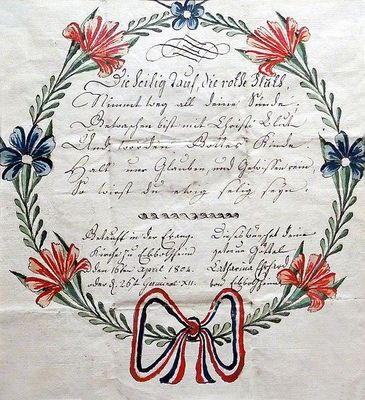 Die heilig Tauf, die rothe Fluth,
Nimmt weg all deine Sünde;
bist mit Christi Blut
Und worden Gottes Kinde
Halt nur Glauben, und Gewissen rein,
So wirst du ewig selig seyn.
Getauft in der Evang.
Kirche zu Eckbolsheim
den 16ten April 1804.
oder d. 26t Germinal XII.
Dies wünschet deine
getreue Göttel
Catharina
von Eckbolsheim